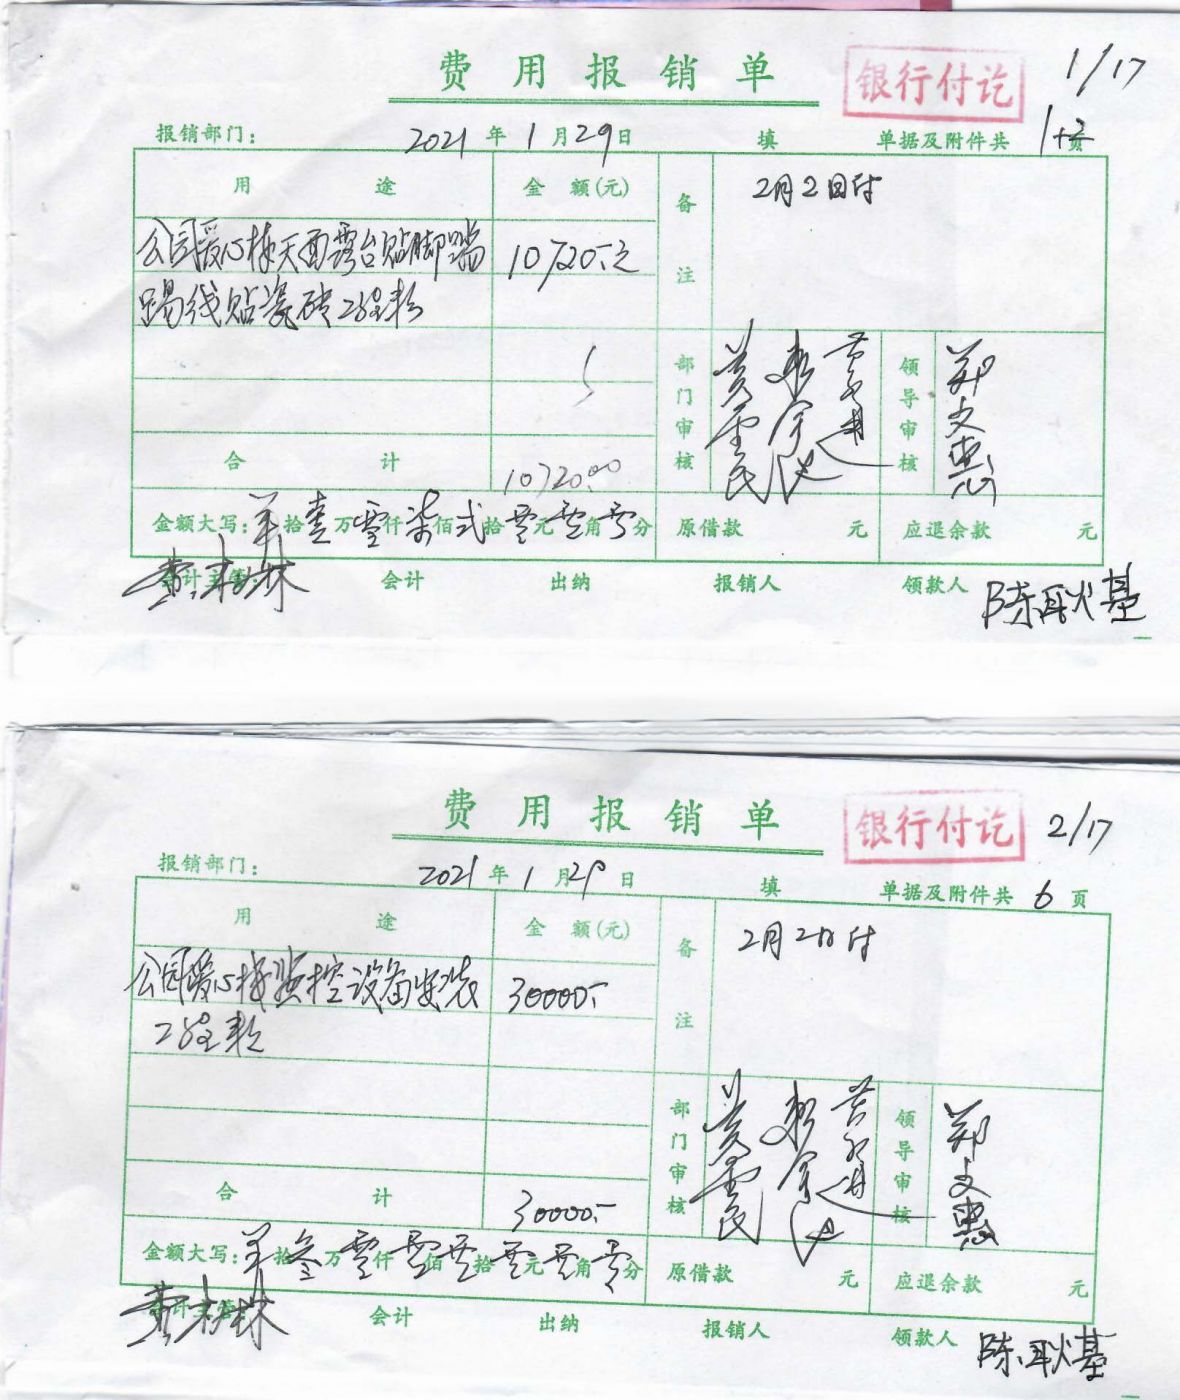 费用报销单
银行付讫
1/17
报销部门：
2021年1月29日
填
单据及附件共 1+2 页
用途
金额(元)
备注
2月2日付
公园爱心楼天面露台贴脚踏
10720.元
踢线贴瓷砖工程款
合计
10720.00
部门审核
领导审核
郑文惠
金额大写：羊拾壹万零仟柒佰弍拾零元零角零分
原借款 元
应退余款 元
会计主管：
会计
出纳
报销人
领款人
陈耿基
费用报销单
银行付讫
2/17
报销部门：
2021年1月29日
填
单据及附件共 6 页
用途
金额(元)
备注
2月2日付
公园爱心楼监控设备安装
30000.-
工程款
合计
30000.-
部门审核
领导审核
郑文惠
金额大写：羊拾叁万零仟零佰零拾零元零角零分
原借款 元
应退余款 元
会计主管：
会计
出纳
报销人
领款人
陈耿基